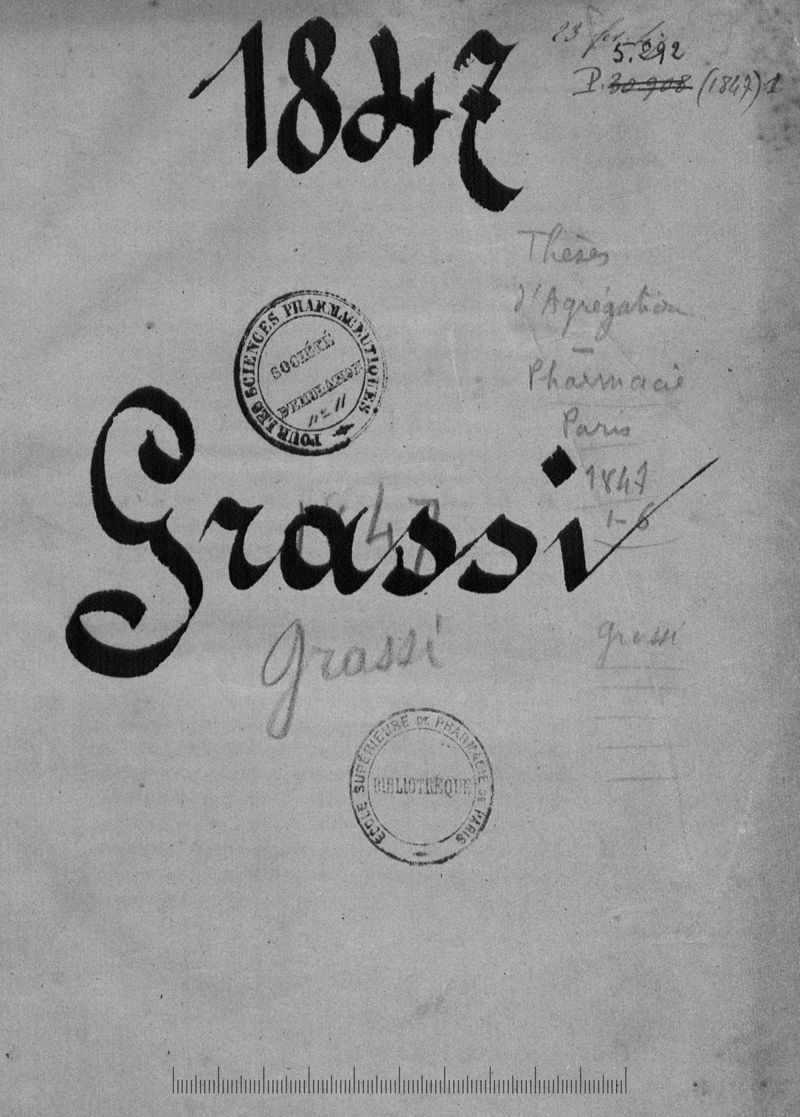 1847
5.292
P. 30.908 (1847) 1
Thèses
d'Agrégation
Pharmacie
Paris
1847
1-6
POUR LES SCIENCES PHARMACEUTIQUES
SOCIÉTÉ
D'EMULATION
Grassi
1847
Grassi
Grassi
ECOLE SUPÉRIEURE DE PHARMACIE DE PARIS
BIBLIOTHÈQUE